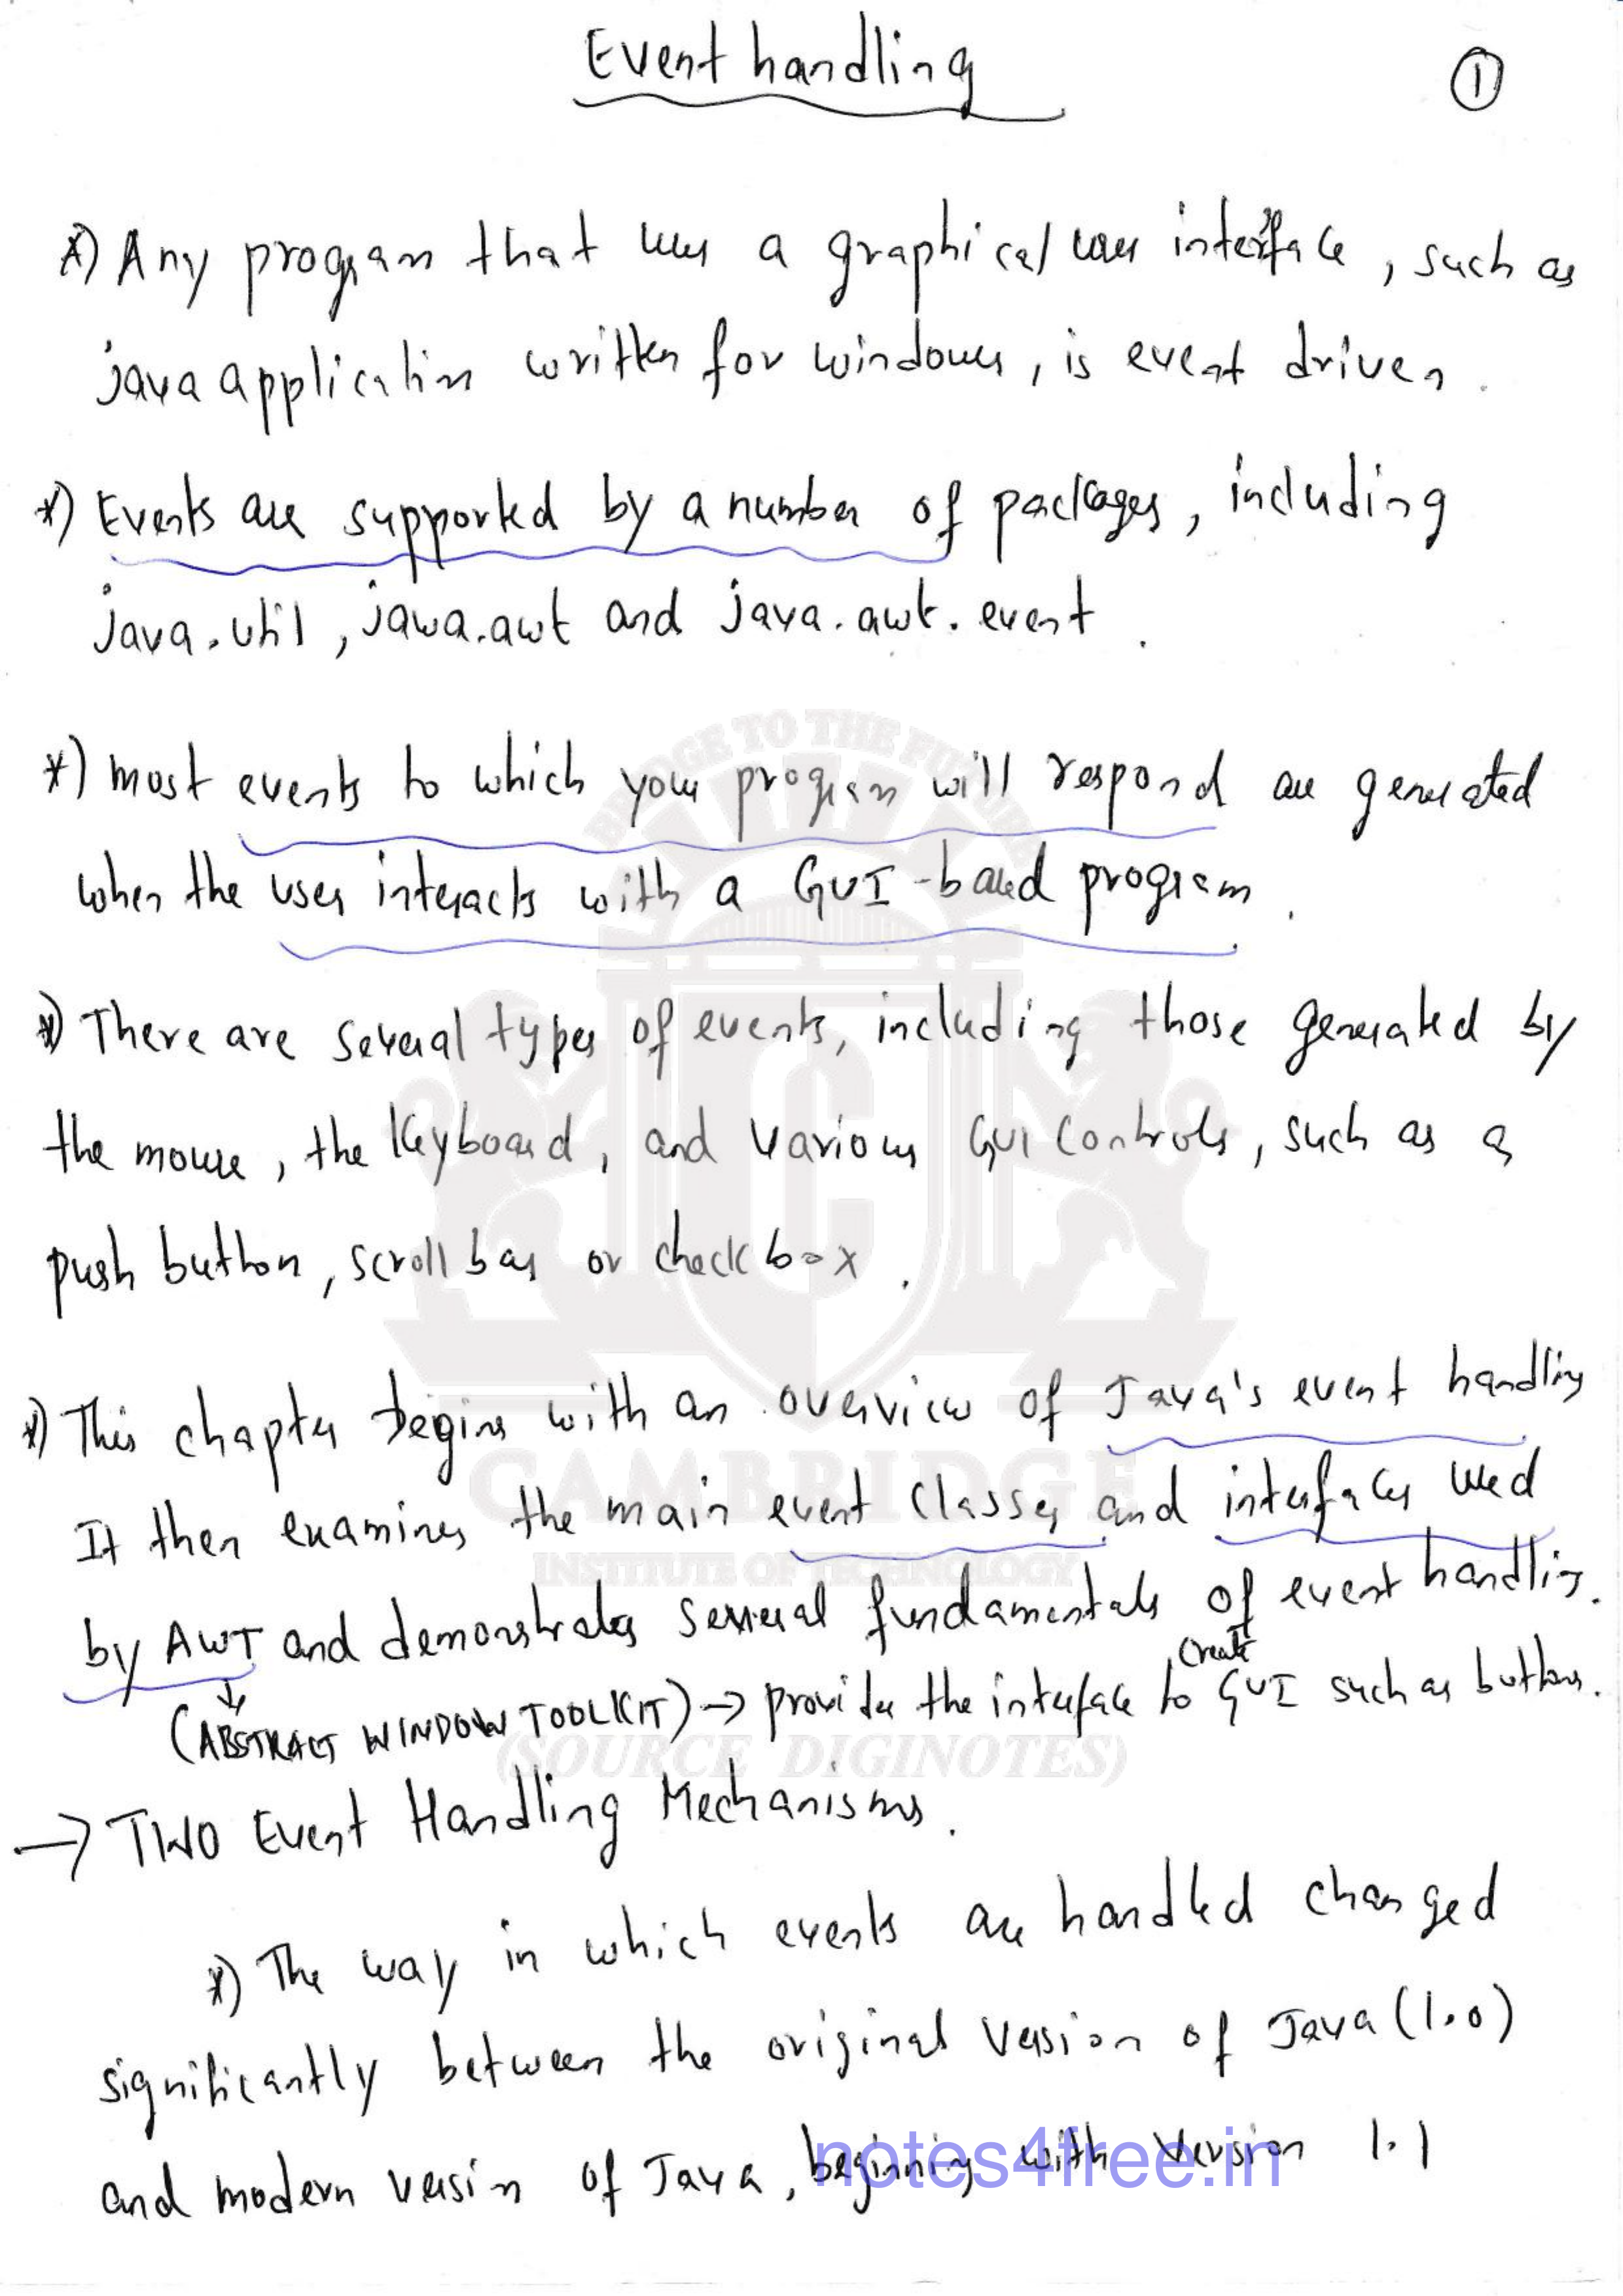 Event handling
1
*) Any program that uses a graphical user interface, such as
java application written for windows, is event driven.
*) Events are supported by a number of packages, including
java.util, java.awt and java.awt.event.
*) most events to which your program will respond are generated
when the user interacts with a GUI-based program.
*) There are several types of events, including those generated by
the mouse, the Keyboard, and various GUI Controls, such as a
push button, scroll bar or check box.
*) This chapter begins with an overview of Java's event handling
It then examines the main event classes and interfaces used
by AWT and demonstrates several fundamentals of event handling.
(ABSTRACT WINDOW TOOLKIT) → provides the interface to create GUI such as buttons.
→ TWO Event Handling Mechanisms.
*) The way in which events are handled changed
significantly between the original version of Java (1.0)
and modern version of Java, beginning with version 1.1
BRIDGE TO THE FUTURE
C
CAMBRIDGE
INSTITUTE OF TECHNOLOGY
(SOURCE DIGINOTES)
notes4free.in